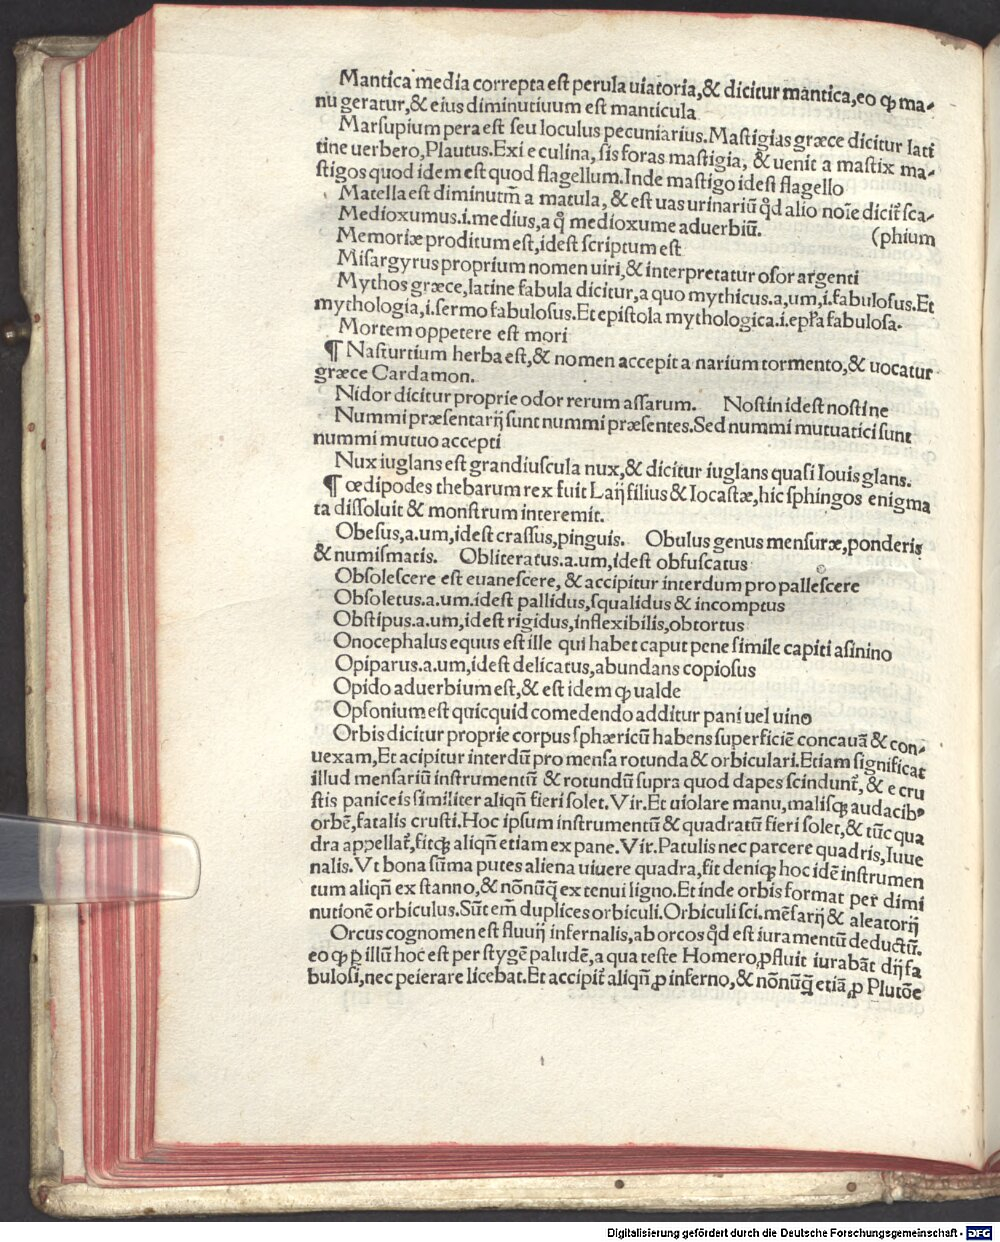 Mantica media correpta est perula uiatoria,& dicitur mantica,eo ꝙ ma⸗
nu geratur,& eius diminutiuum est manticula
Marsupium pera est seu loculus pecuniarius.Mastigias græce dicitur lati
tine uerbero,Plautus.Exi e culina, sis foras mastigia, & uenit a mastix ma⸗
stigos quod idem est quod flagellum.Inde mastigo idest flagello
Matella est diminutm̃ a matula, & est uas urinariũ qd̃ alio noĩe dicit̃ sca⸗
Medioxumus.i.medius,a q̃ medioxume aduerbiũ. (phium
Memoriæ proditum est,idest scriptum est
Misargyrus proprium nomen uiri,& interpretatur osor argenti
Mythos græce,latine fabula dicitur,a quo mythicus.a,um,i.fabulosus.Et
mythologia,i.sermo fabulosus.Et epistola mythologica.i.epľa fabulosa.
Mortem oppetere est mori
¶ Nasturtium herba est,& nomen accepit a narium tormento,& uocatur
græce Cardamon.
Nidor dicitur proprie odor rerum assarum. Nostin idest nosti ne
Nummi præsentarij sunt nummi præsentes.Sed nummi mutuatici sunt
nummi mutuo accepti
Nux iuglans est grandiuscula nux,& dicitur iuglans quasi Iouis glans.
¶ œdipodes thebarum rex fuit Laij filius & Iocastæ,hic sphingos enigma
ta dissoluit & monstrum interemit.
Obesus,a.um,idest crassus,pinguis. Obulus genus mensuræ,ponderis
& numismatis. Obliteratus.a.um,idest obfuscatus
Obsolescere est euanescere, & accipitur interdum pro pallescere
Obsoletus.a.um.idest pallidus,squalidus & incomptus
Obstipus.a.um,idest rigidus,inflexibilis,obtortus
Onocephalus equus est ille qui habet caput pene simile capiti asinino
Opiparus.a.um,idest delicatus,abundans copiosus
Opido aduerbium est,& est idem ꝙ ualde
Opsonium est quicquid comedendo additur pani uel uino
Orbis dicitur proprie corpus sphæricũ habens superficiẽ concauã & con⸗
uexam,Et acipitur interdũ pro mensa rotunda & orbiculari.Etiam significat
illud mensariũ instrumentũ & rotundũ supra quod dapes scindunt̃, & e cru
stis paniceis similiter aliqñ fieri solet.Vir.Et uiolare manu,malisqꝫ audacibꝰ
orbẽ,fatalis crusti.Hoc ipsum instrumentũ & quadratũ fieri solet,& tũc qua
dra appellat̃,fitqꝫ aliqñ etiam ex pane.Vir.Patulis nec parcere quadris,Iuue
nalis.Vt bona sũma putes aliena uiuere quadra,fit deniqꝫ hoc idẽ instrumen
tum aliqñ ex stanno,& nõnũq̃ ex tenui ligno.Et inde orbis format per dimi
nutionẽ orbiculus.Sũt em̃ duplices orbiculi.Orbiculi sci.mẽsarij & aleatorij
Orcus cognomen est fluuij infernalis,ab orcos qd̃ est iuramentũ deductũ.
eo ꝙ ꝑ illũ hoc est per stygẽ paludẽ,a qua teste Homero,ꝓfluit iurabãt dij fa
bulosi,nec peierare licebat.Et accipit̃ aliqñ ꝓ inferno,& nõnũq̃ etiã ꝓ Plutõe
Digitalisierung gefördert durch die Deutsche Forschungsgemeinschaft - DFG